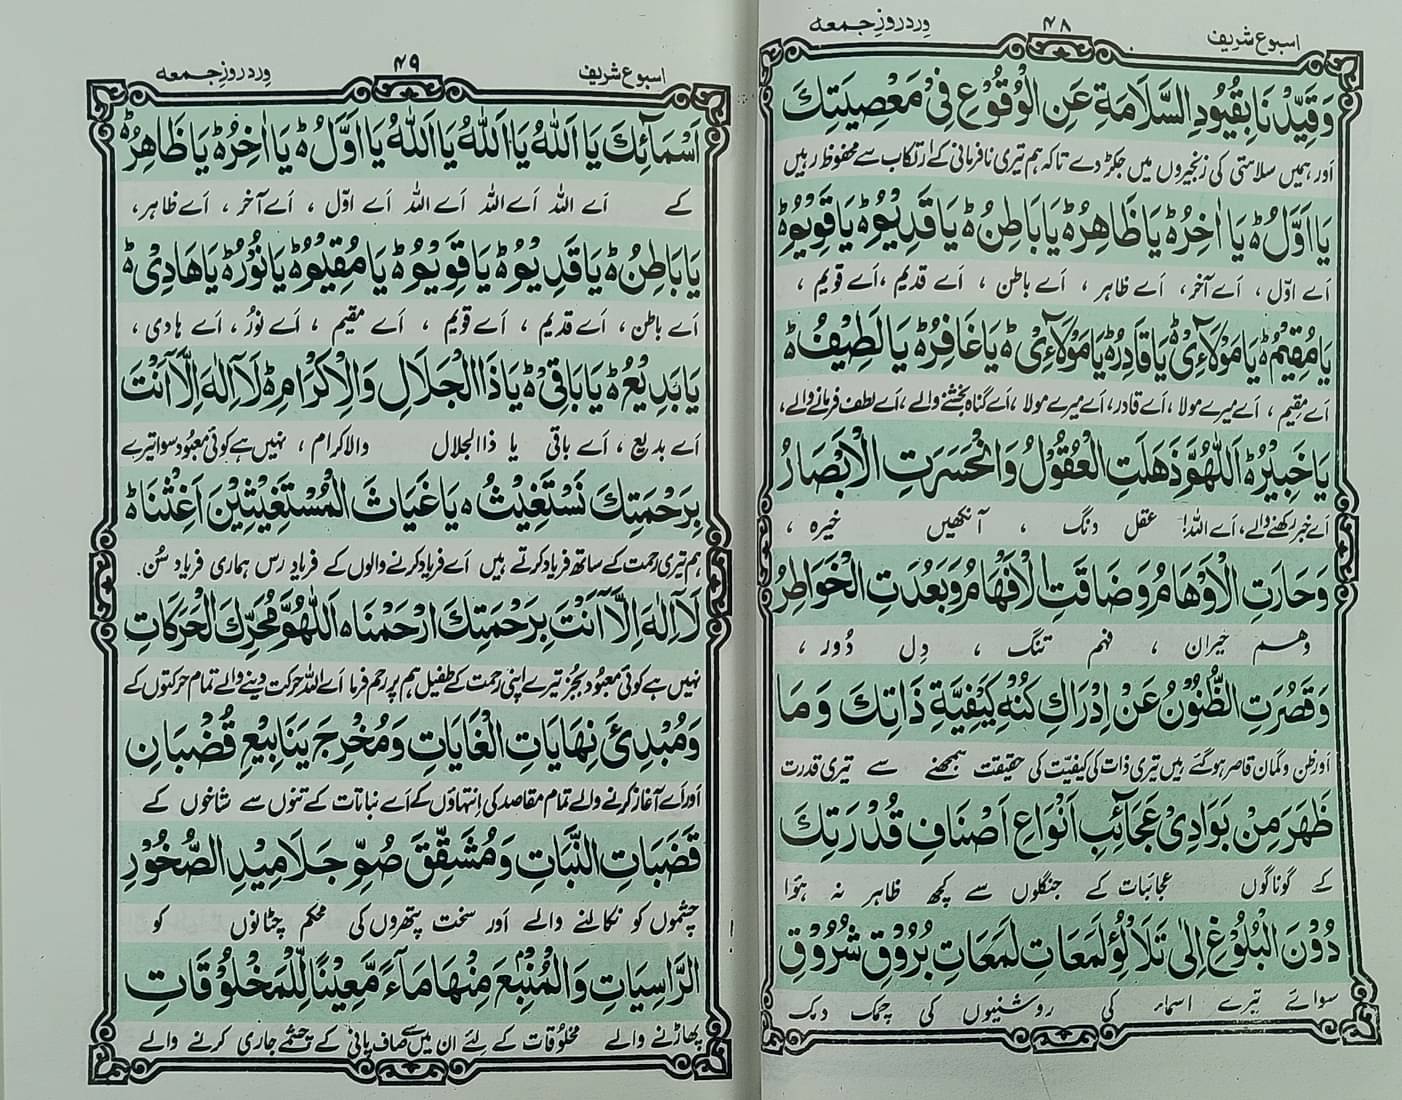 اسبوع شریف ۴۸ وِردِ روزِ جمعہ
وَقَيِّدْنَا بِقُيُودِ السَّلَامَةِ عَنِ الْوُقُوْعِ فِيْ مَعْصِيَتِكَ
اَور ہمیں سلامتی کی زنجیروں میں جکڑ دے تاکہ ہم تیری نافرمانی کے ارتکاب سے محفوظ رہیں
يَا اَوَّلُ ہ يَا اٰخِرُ ہ يَا ظَاهِرُ ہ يَا بَاطِنُ ہ يَا قَدِيْمُ ہ يَا قَوِيْمُ ہ
اَے اوّل ، اَے آخر، اَے ظاہر ، اَے باطن ، اَے قدیم ، اَے قویم ،
يَا مُقِيْمُ ہ يَا مَوْلَآئِيْ ہ يَا قَادِرُ ہ يَا مَوْلَآئِيْ ہ يَا غَافِرُ ہ يَا لَطِيْفُ ہ
اَے مقیم ، اَے میرے مولا ، اَے قادر، اَے میرے مولا ، اَے گناہ بخشنے والے ، اَے لطف فرمانے والے ،
يَا خَبِيْرُ ہ اَللّٰهُمَّ ذَهَلَتِ الْعُقُوْلُ وَانْحَسَرَتِ الْاَبْصَارُ
اَے خبر رکھنے والے، اَے اللہ! عقل دنگ ، آنکھیں خیرہ ،
وَحَارَتِ الْاَوْهَامُ وَضَاقَتِ الْاَفْهَامُ وَبَعُدَتِ الْخَوَاطِرُ
وہم حیران ، فہم تنگ ، دِل دُور ،
وَقَصُرَتِ الظُّنُوْنُ عَنْ اِدْرَاكِ كُنْهِ كَيْفِيَّةِ ذَاتِكَ وَمَا
اَور ظن و گمان قاصر ہو گئے ہیں تیری ذات کی کیفیت کی حقیقت سمجھنے سے تیری قدرت
ظَهَرَ مِنْ بَوَادِيْ عَجَآئِبِ اَنْوَاعِ اَصْنَافِ قُدْرَتِكَ
کے گوناگوں عجائبات کے جنگلوں سے کچھ ظاہر نہ ہؤا
دُوْنَ الْبُلُوْغِ اِلٰى تَلَاْلُؤِ لَمَعَاتِ لَمَعَاتِ بُرُوْقِ شُرُوْقِ
سوائے تیرے اسماء کی روشنیوں کی چمک دمک
اسبوع شریف ۴۹ وِردِ روزِ جمعہ
اَسْمَآئِكَ يَا اَللّٰهُ يَا اَللّٰهُ يَا اَللّٰهُ يَا اَوَّلُ ہ يَا اٰخِرُ ہ يَا ظَاهِرُ ہ
کے اَے اللہ اَے اللہ اَے اللہ اَے اوّل ، اَے آخر ، اَے ظاہر ،
يَا بَاطِنُ ہ يَا قَدِيْمُ ہ يَا قَوِيْمُ ہ يَا مُقِيْمُ ہ يَا نُوْرُ ہ يَا هَادِيْ ہ
اَے باطن ، اَے قدیم ، اَے قویم ، اَے مقیم ، اَے نوُر ، اَے ہادی ،
يَا بَدِيْعُ ہ يَا بَاقِيْ ہ يَا ذَا الْجَلَالِ وَالْاِكْرَامِ ہ لَآ اِلٰهَ اِلَّآ اَنْتَ
اَے بدیع ، اَے باقی یا ذا الجلال والاکرام ، نہیں ہے کوئی معبُود سوا تیرے
بِرَحْمَتِكَ نَسْتَغِيْثُ ہ يَا غِيَاثَ الْمُسْتَغِيْثِيْنَ اَغِثْنَا ہ
ہم تیری رحمت کے ساتھ فریاد کرتے ہیں اَے فریاد کرنے والوں کے فریاد رس ہماری فریاد سُن۔
لَآ اِلٰهَ اِلَّآ اَنْتَ بِرَحْمَتِكَ ارْحَمْنَا ہ اَللّٰهُمَّ مُحَرِّكَ الْحَرَكَاتِ
نہیں ہے کوئی معبُود بجُز تیرے اپنی رحمت کے طفیل ہم پر رحم فرما اَے اللہ حرکت دینے والے تمام حرکتوں کے
وَمُبْدِئَ نِهَايَاتِ الْغَايَاتِ وَمُخْرِجَ يَنَابِيْعِ قُضْبَانِ
اَور اَے آغاز کرنے والے تمام مقاصد کی اِنتہاؤں کے اَے نباتات کے تنوں سے شاخوں کے
قَضَبَاتِ النَّبَاتِ وَمُشَقِّقَ صُمِّ جَلَامِيْدِ الصُّخُوْرِ
چشموں کو نکالنے والے اَور سخت پتھروں کی محکم چٹانوں کو
الرَّاسِيَاتِ وَالْمُنْبِعَ مِنْهَا مَآءً مَّعِيْنًا لِّلْمَخْلُوْقَاتِ
پھاڑنے والے مخلوُقات کے لئے ان میں سے صاف پانی کے چشمے جاری کرنے والے